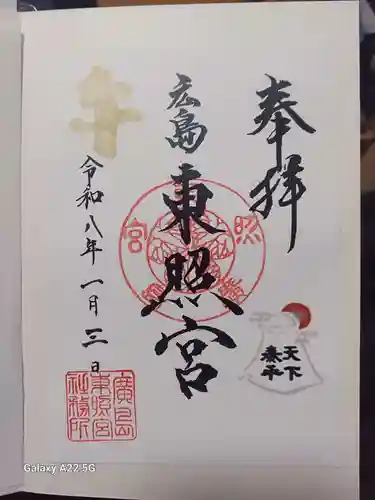 奉拝
天下
泰平
広島
東照宮
午
令和八年一月三日
廣島
東照宮
社務所
Galaxy A22 5G